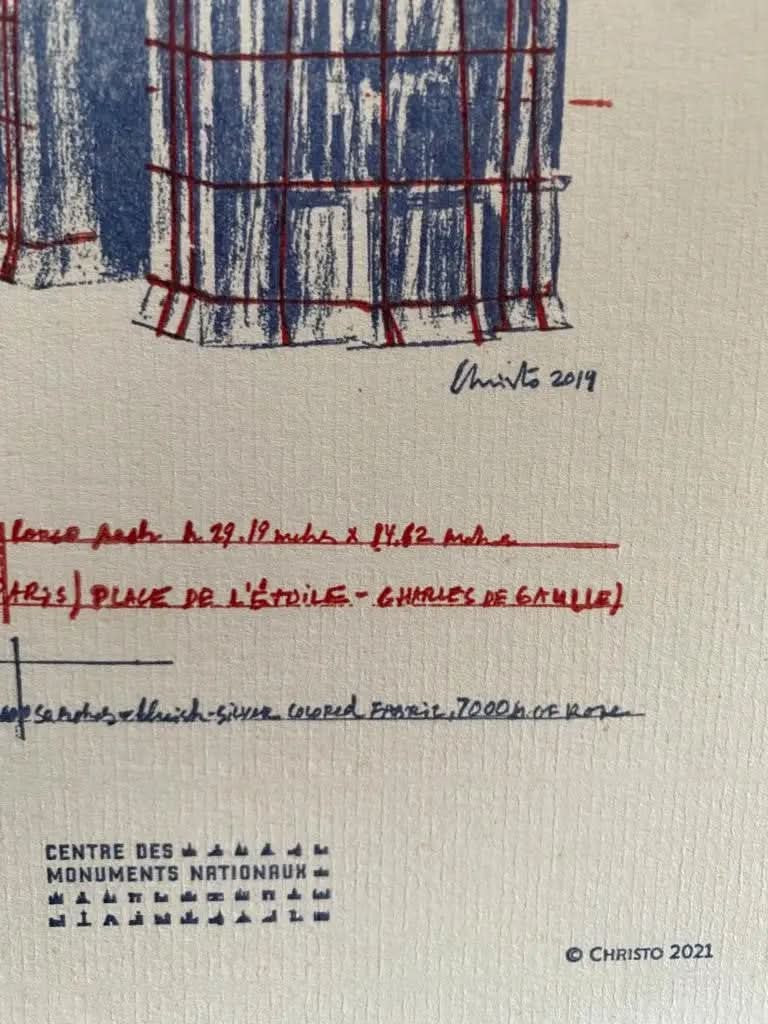 Christo 2019
h 29.19 x 14.62
ARIS) PLACE DE L'ÉTOILE - CHARLES DE GAULLE)
bluish-silver colored FABRIC, 7000 OF Rope
CENTRE DES
MONUMENTS NATIONAUX
© CHRISTO 2021